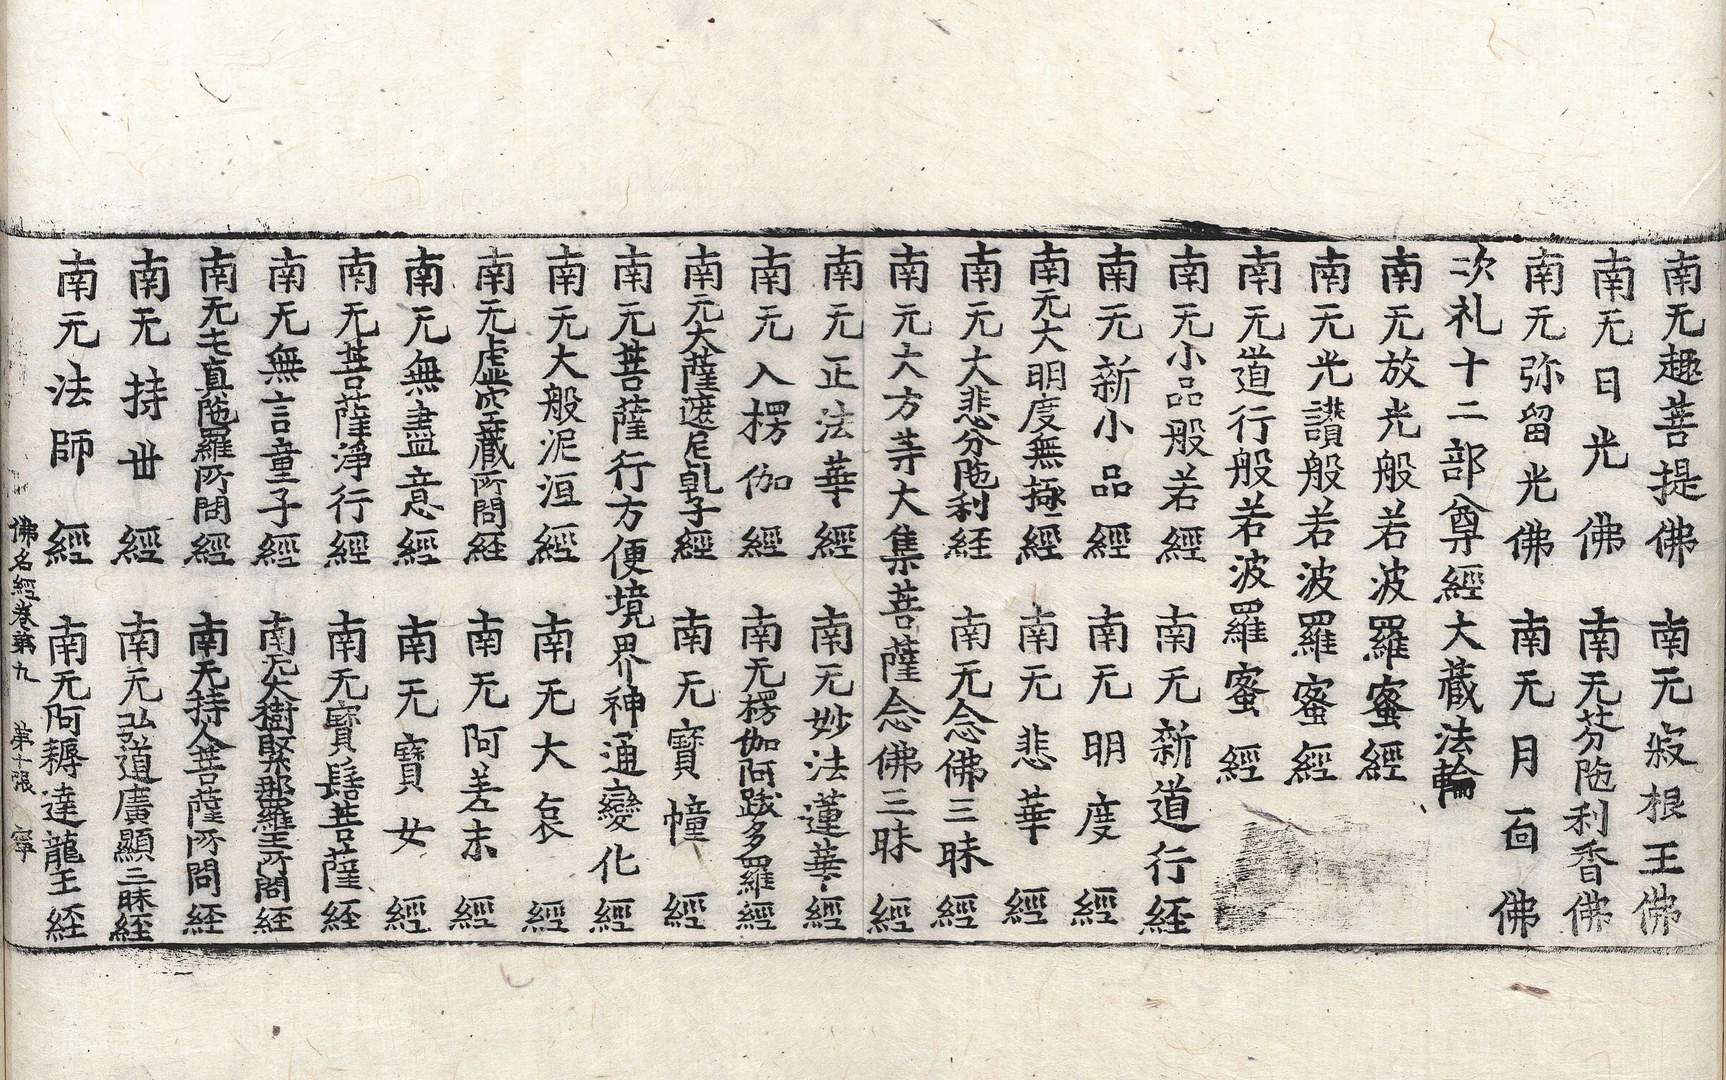 南无趣菩提佛 南无寂根王佛
南无日光佛 南无芬陁利香佛
南无弥留光佛 南无月面佛
次礼十二部尊經大藏法輪
南无放光般若波羅蜜經
南无光讃般若波羅蜜經
南无道行般若波羅蜜經
南无小品般若經 南无新道行経
南无新小品經 南无明度經
南无大明度無極經 南无悲華經
南无大悲分陁利経 南无念佛三昧經
南无大方等大集菩薩念佛三昧經
南无正法華經 南无妙法蓮華經
南无入楞伽經 南无楞伽阿跋多羅經
南无大薩遮尼乹子經 南无寳幢經
南无菩薩行方便境界神通變化經
南无大般泥洹經 南无大哀經
南无虛空藏所問経 南无阿差末經
南无無盡意經 南无寶女經
南无菩薩淨行經 南无寳髻菩薩経
南无無言童子經 南无大樹緊那羅王所問経
南无屯真陁羅所問經 南无持人菩薩所問経
南无持世經 南无弘道廣顯三昧経
南无法師經 南无阿耨達龍王経
佛名經卷第九 第十張 寧